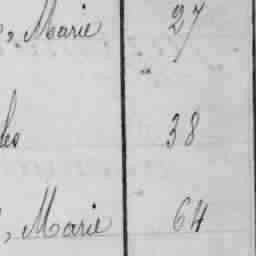 , Marie 27
les 38
, Marie 64